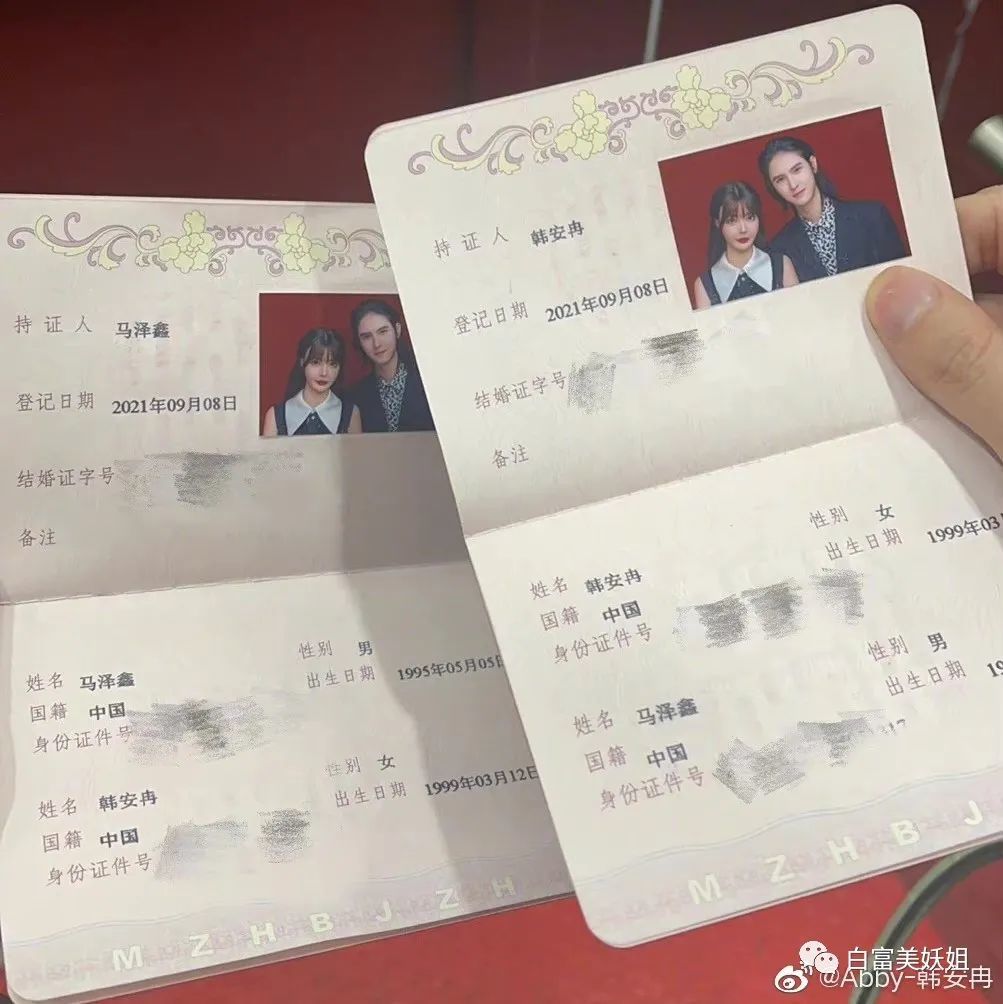 持证人 马泽鑫
登记日期 2021年09月08日
结婚证字号
备注
姓名 马泽鑫 性别 男
国籍 中国 出生日期 1995年05月05日
身份证件号
姓名 韩安冉 性别 女
国籍 中国 出生日期 1999年03月12日
身份证件号
M Z H B J Z H
持证人 韩安冉
登记日期 2021年09月08日
结婚证字号
备注
姓名 韩安冉 性别 女
国籍 中国 出生日期 1999年03
身份证件号
姓名 马泽鑫 性别 男
国籍 中国 出生日期 19
身份证件号
M Z H B J
白富美妖姐
@Abby-韩安冉